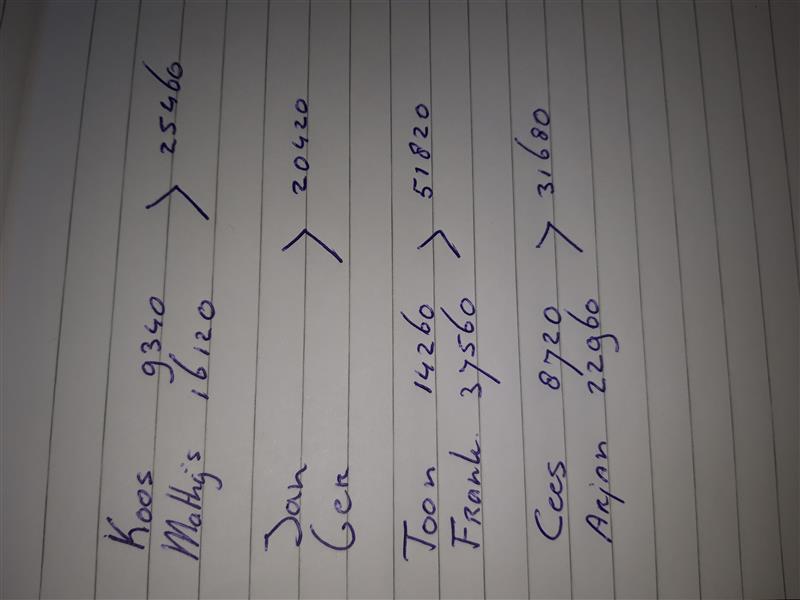 Koos 9340 > 25460
Mathijs 16120
Jan > 20420
Ger
Toon 14260 > 51820
Frank 37560
Cees 8720 > 31680
Arjan 22960